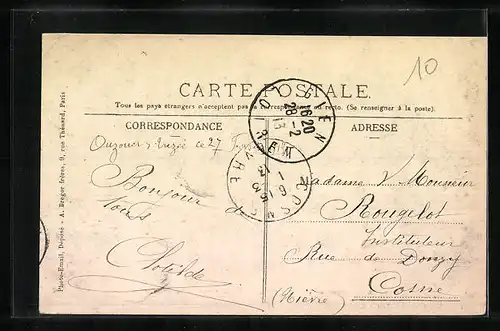 10
CARTE POSTALE
Tous les pays étrangers n'acceptent pas la correspondance au recto. (Se renseigner à la poste).
CORRESPONDANCE
ADRESSE
Ouzouer s/ Trézée ce 27
Bonjour
Tous
Clotilde
GIEN
16 20
28 - 2
13
COSNE
NIÈVRE
1 - 3
13
Madame & Monsieur
Rougelot
Instituteur
Rue de Donzy
Cosne
(Nièvre)
Photo-Email, Déposé - A. Breger frères, 9, rue Thénard, Paris